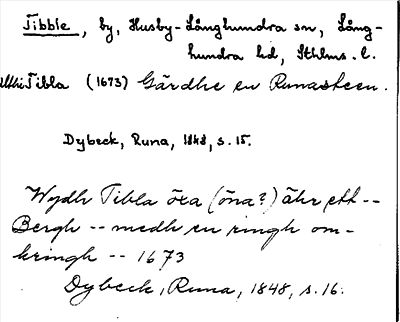 Tibble, by, Husby-Långhundra sn, Lång-
hundra hd, Sthlms. l.
Uthi Tibla (1673) Gärdhe en Runasteen.
Dybeck, Runa, 1848, s. 15.
Wydh Tibla öxa (öna?) ähr ett --
Bergh -- medh en ringh om-
kringh -- 1673
Dybeck, Runa, 1848, s. 16.